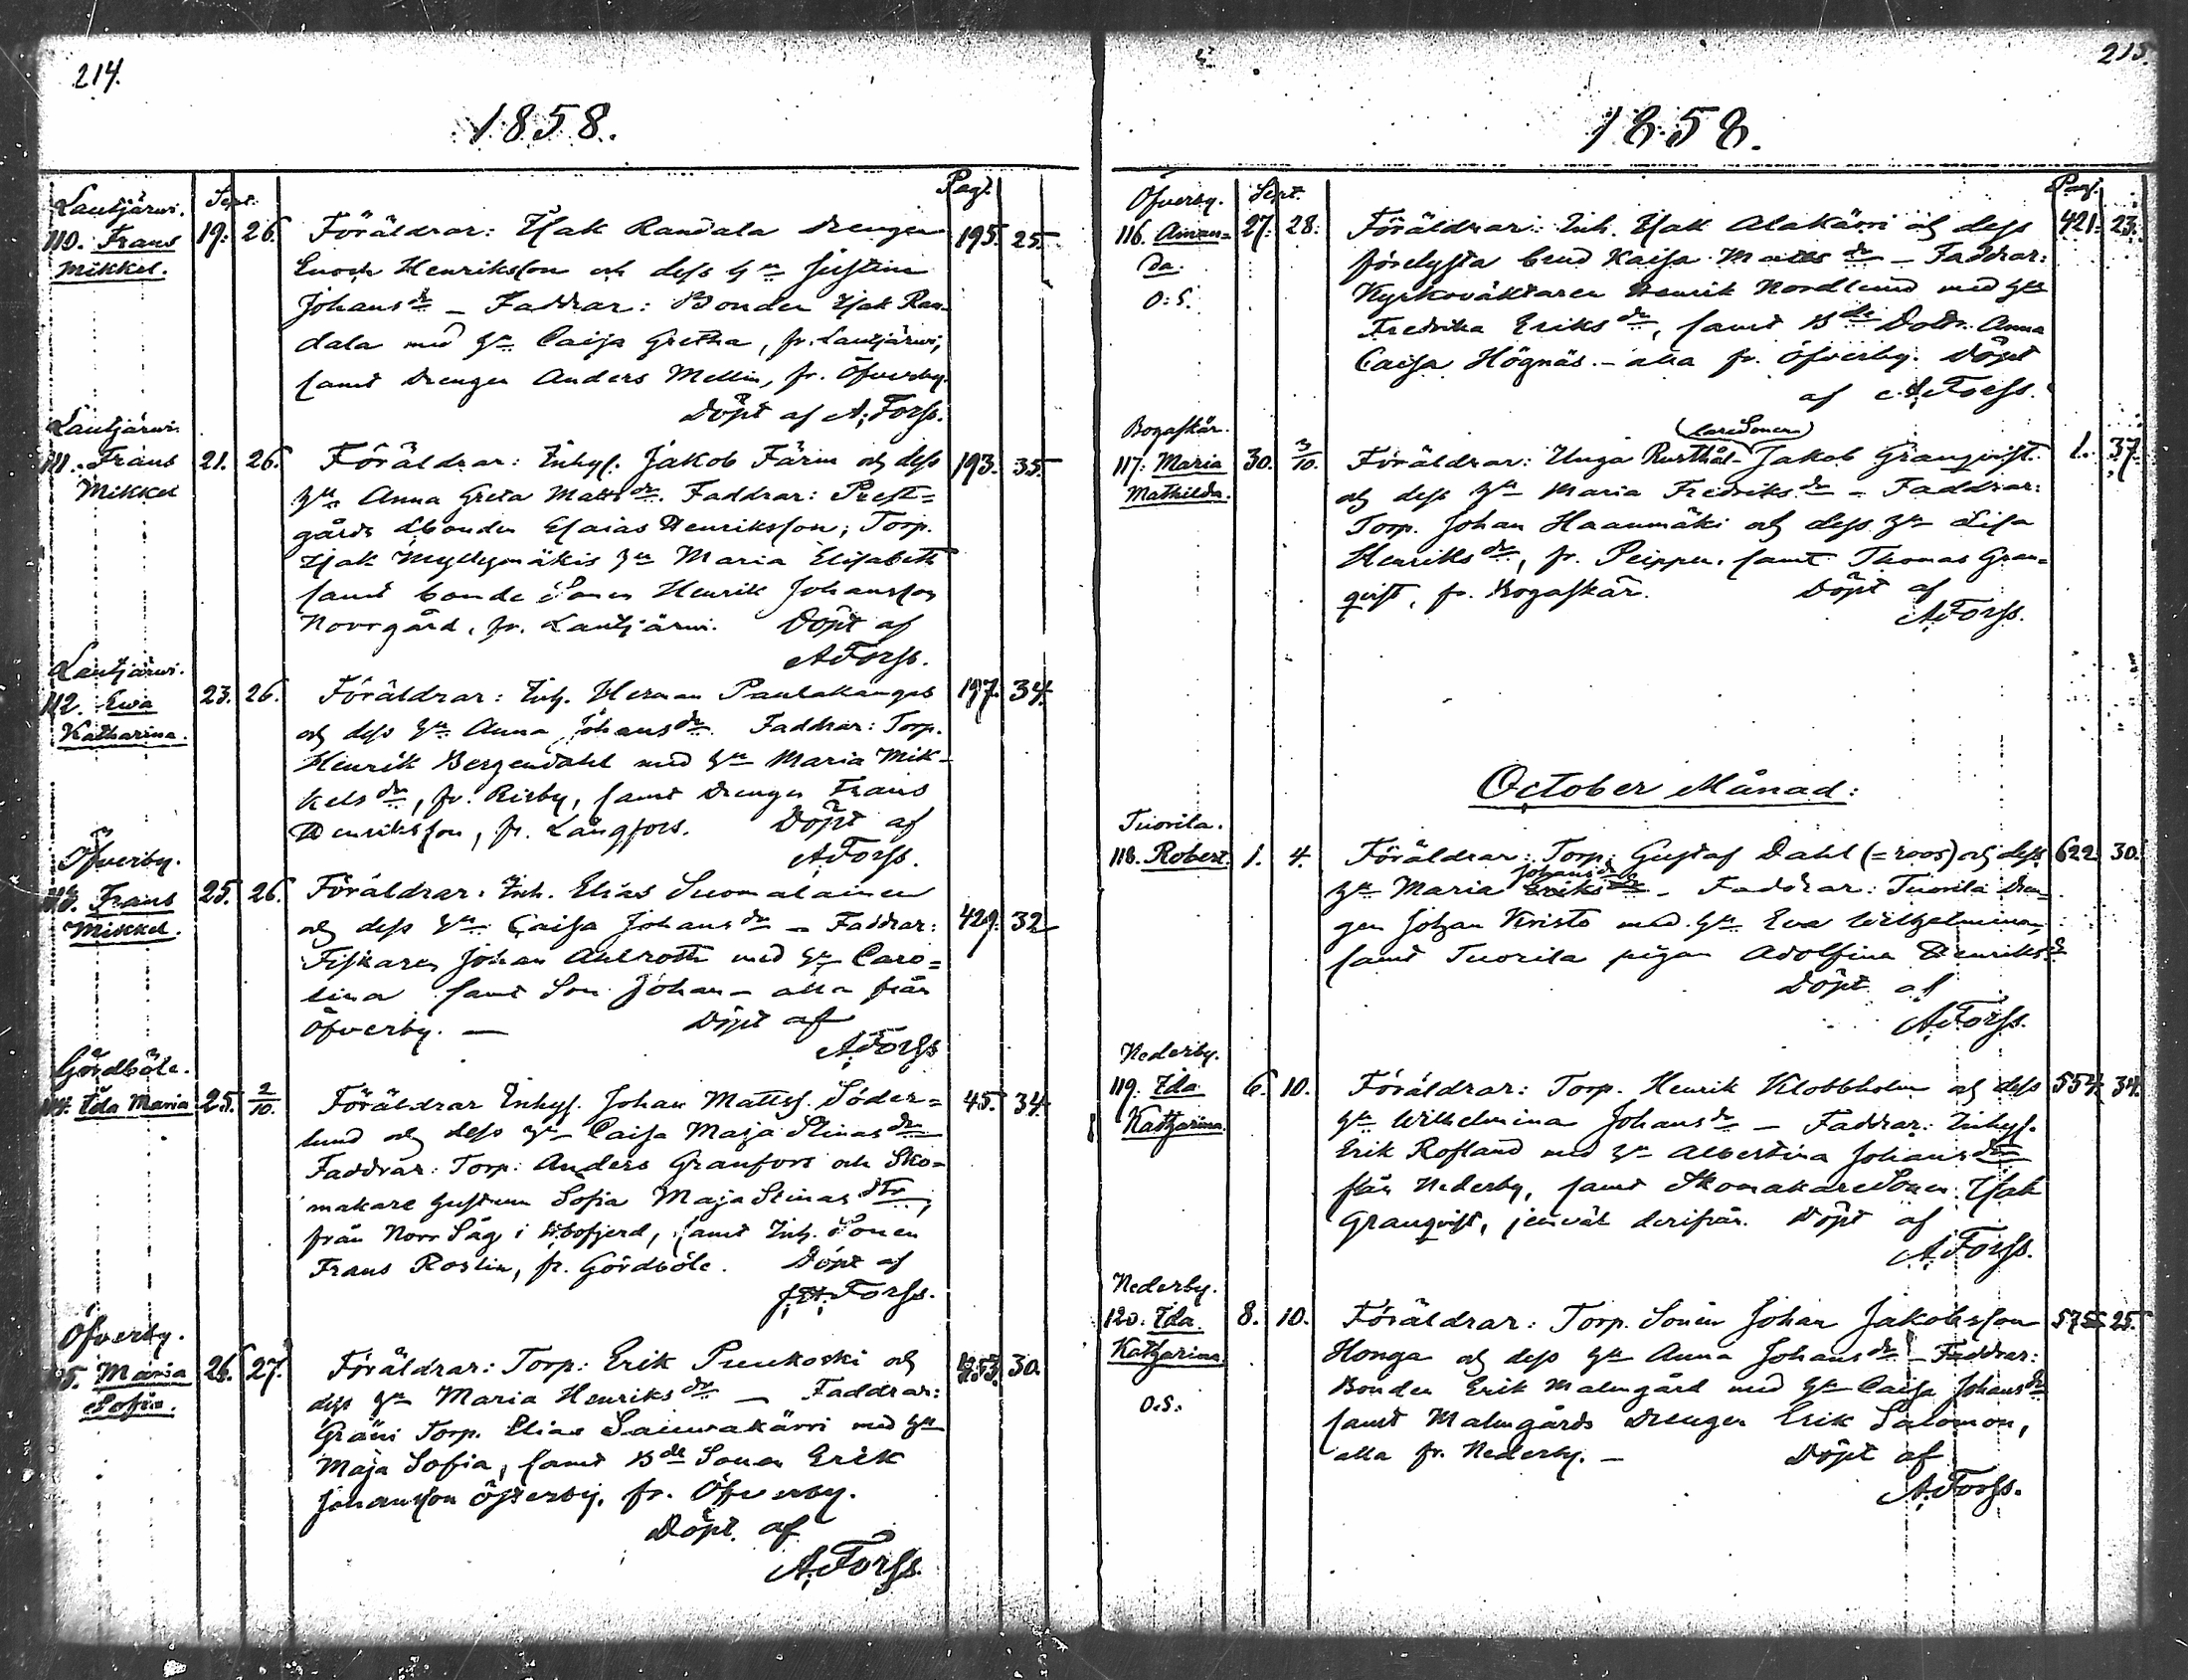 214.
1858.
Lautjärwi. Sept. Pag.
110. Frans 19. 26. Föräldrar: Isak Randala drengen 195. 25.
Mikkel. Enoch Henriksson och dess h:u Justina
Johans dr – Faddrar: Bonden Isak Ran-
dala med h:u Caisa Gretha, fr. Lautjärwi,
samt drengen Anders Mellin, fr. Öfverby.
Döpt af A. Forss.
Lautjärwi.
111. Frans 21. 26. Föräldrar: Inhys. Jakob Färm och dess 193. 35.
Mikkel h:u Anna Greta Matts dr. Faddrar: Prest=
gårds Åbonden Esaias Henriksson; Torp.
Isak Myllymäkis h:u Maria Elisabeth
samt bonde Sonen Henrik Johansson
Norrgård, fr. Lautjärwi. Döpt af
A. Forss.
Lautjärwi.
112. Ewa 23. 26. Föräldrar: Inh. Herman Paulakangas 197. 34.
Katharina. och dess h:u Anna Johans dr. Faddrar: Torp.
Henrik Bergendahl med h:u Maria Mik-
kels dr, fr. Risby, samt drengen Frans
Henriksson, fr. Långfors. Döpt af
A. Forss.
Öfverby.
113. Frans 25. 26. Föräldrar. Inh. Elias Suomalainen
Mikkel. och dess h:u Caisa Johans dr – Faddrar: 429. 32
Fiskaren Johan Ahlroth med h:u Caro=
lina samt Son Johan – alla från
Öfverby. – Döpt af
A. Forss
Gördböle.
114. Ida Maria 25. 2/10. Föräldrar Inhys. Johan Mattss. Söder= 45. 34.
lund och dess h:u Caisa Maja Stinas dr
Faddrar: Torp: Anders Granfors och Sko=
makare hustrun Sofia Maja Stinas dtr,
från Norr Såg i Åbofjerd, samt Inh. Sonen
Frans Roslin, fr. Gördböle. Döpt af
J. H. Forss.
Öfverby.
115. Maria 26. 27. Föräldrar: Torp: Erik Puukoski och 253. 30.
Sofia. dess h:u Maria Henriks dr – Faddrar:
Gräni Torp. Elias Sauwakärri med h:u
Maja Sofia, samt B de Sonen Erik
Johansson Österby, fr. Öfverby.
Döpt af
A. Forss.
215.
1858.
Öfverby. Sept. Pag.
116. Aman= 27. 28. Föräldrar: Inh. Isak Alakärri och dess 421. 23.
da. förelysta brud Kaisa Matts dr – Faddrar:
O: S. Kyrkoväktaren Henrik Nordlund med h:u
Fredrika Eriks dr, samt B de Dottr. Anna
Caisa Högnäs. – alla fr. Öfverby. Döpt
af A. Forss.
Bogaskär.
117. Maria 30. 3/10. Föräldrar: Unga Rusthål- (laresonen) Jakob Granqvist 1. 37.
Mathilda. och dess h:u Maria Fredriks dr – Faddrar:
Torp. Johan Haanmäki och dess h:u Lisa
Henriks dr, fr. Peippu. samt Thomas Gran-
qvist, fr. Bogaskär. Döpt af
A. Forss.
October Månad:
Tuorila.
118. Robert. 1. 4. Föräldrar: Torp: Gustaf Dahl (=roos) och dess 622 30.
h:u Maria Johans dr Eriks dr – Faddrar: Tuorila dren-
gen Johan Kvisto med h:u Eva Wilhelmina,
samt Tuorila pigan Adolfina Henriks dr
Döpt af
A. Forss.
Nederby.
119. Ida 6. 10. Föräldrar: Torp. Henrik Klobbholm och dess 554. 34.
Katharina. h:u Wilhelmina Johans dr – Faddrar: Inhys.
Erik Rosland med h:u Albertina Johans dr
från Nederby, samt Skomakaresonen Isak
Granqvist, jenväl derifrån. Döpt af
A. Forss.
Nederby.
120. Ida 8. 10. Föräldrar: Torp. Sonen Johan Jakobsson 575 25.
Katharina Honga och dess h:u Anna Johans dr – Faddrar:
O.S. Bonden Erik Malmgård med h:u Caisa Johans dr
samt Malmgårds drengen Erik Salomon,
alla fr. Nederby. – Döpt af
A. Forss.